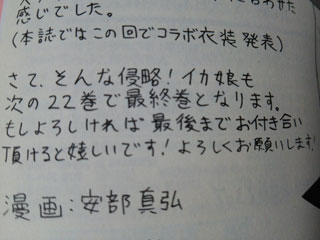 感じでした。
(本誌ではこの回でコラボ衣装発表)
さて、そんな侵略!イカ娘も
次の22巻で最終巻となります。
もしよろしければ最後までお付き合い
頂けると嬉しいです!よろしくお願いします!
漫画:安部真弘